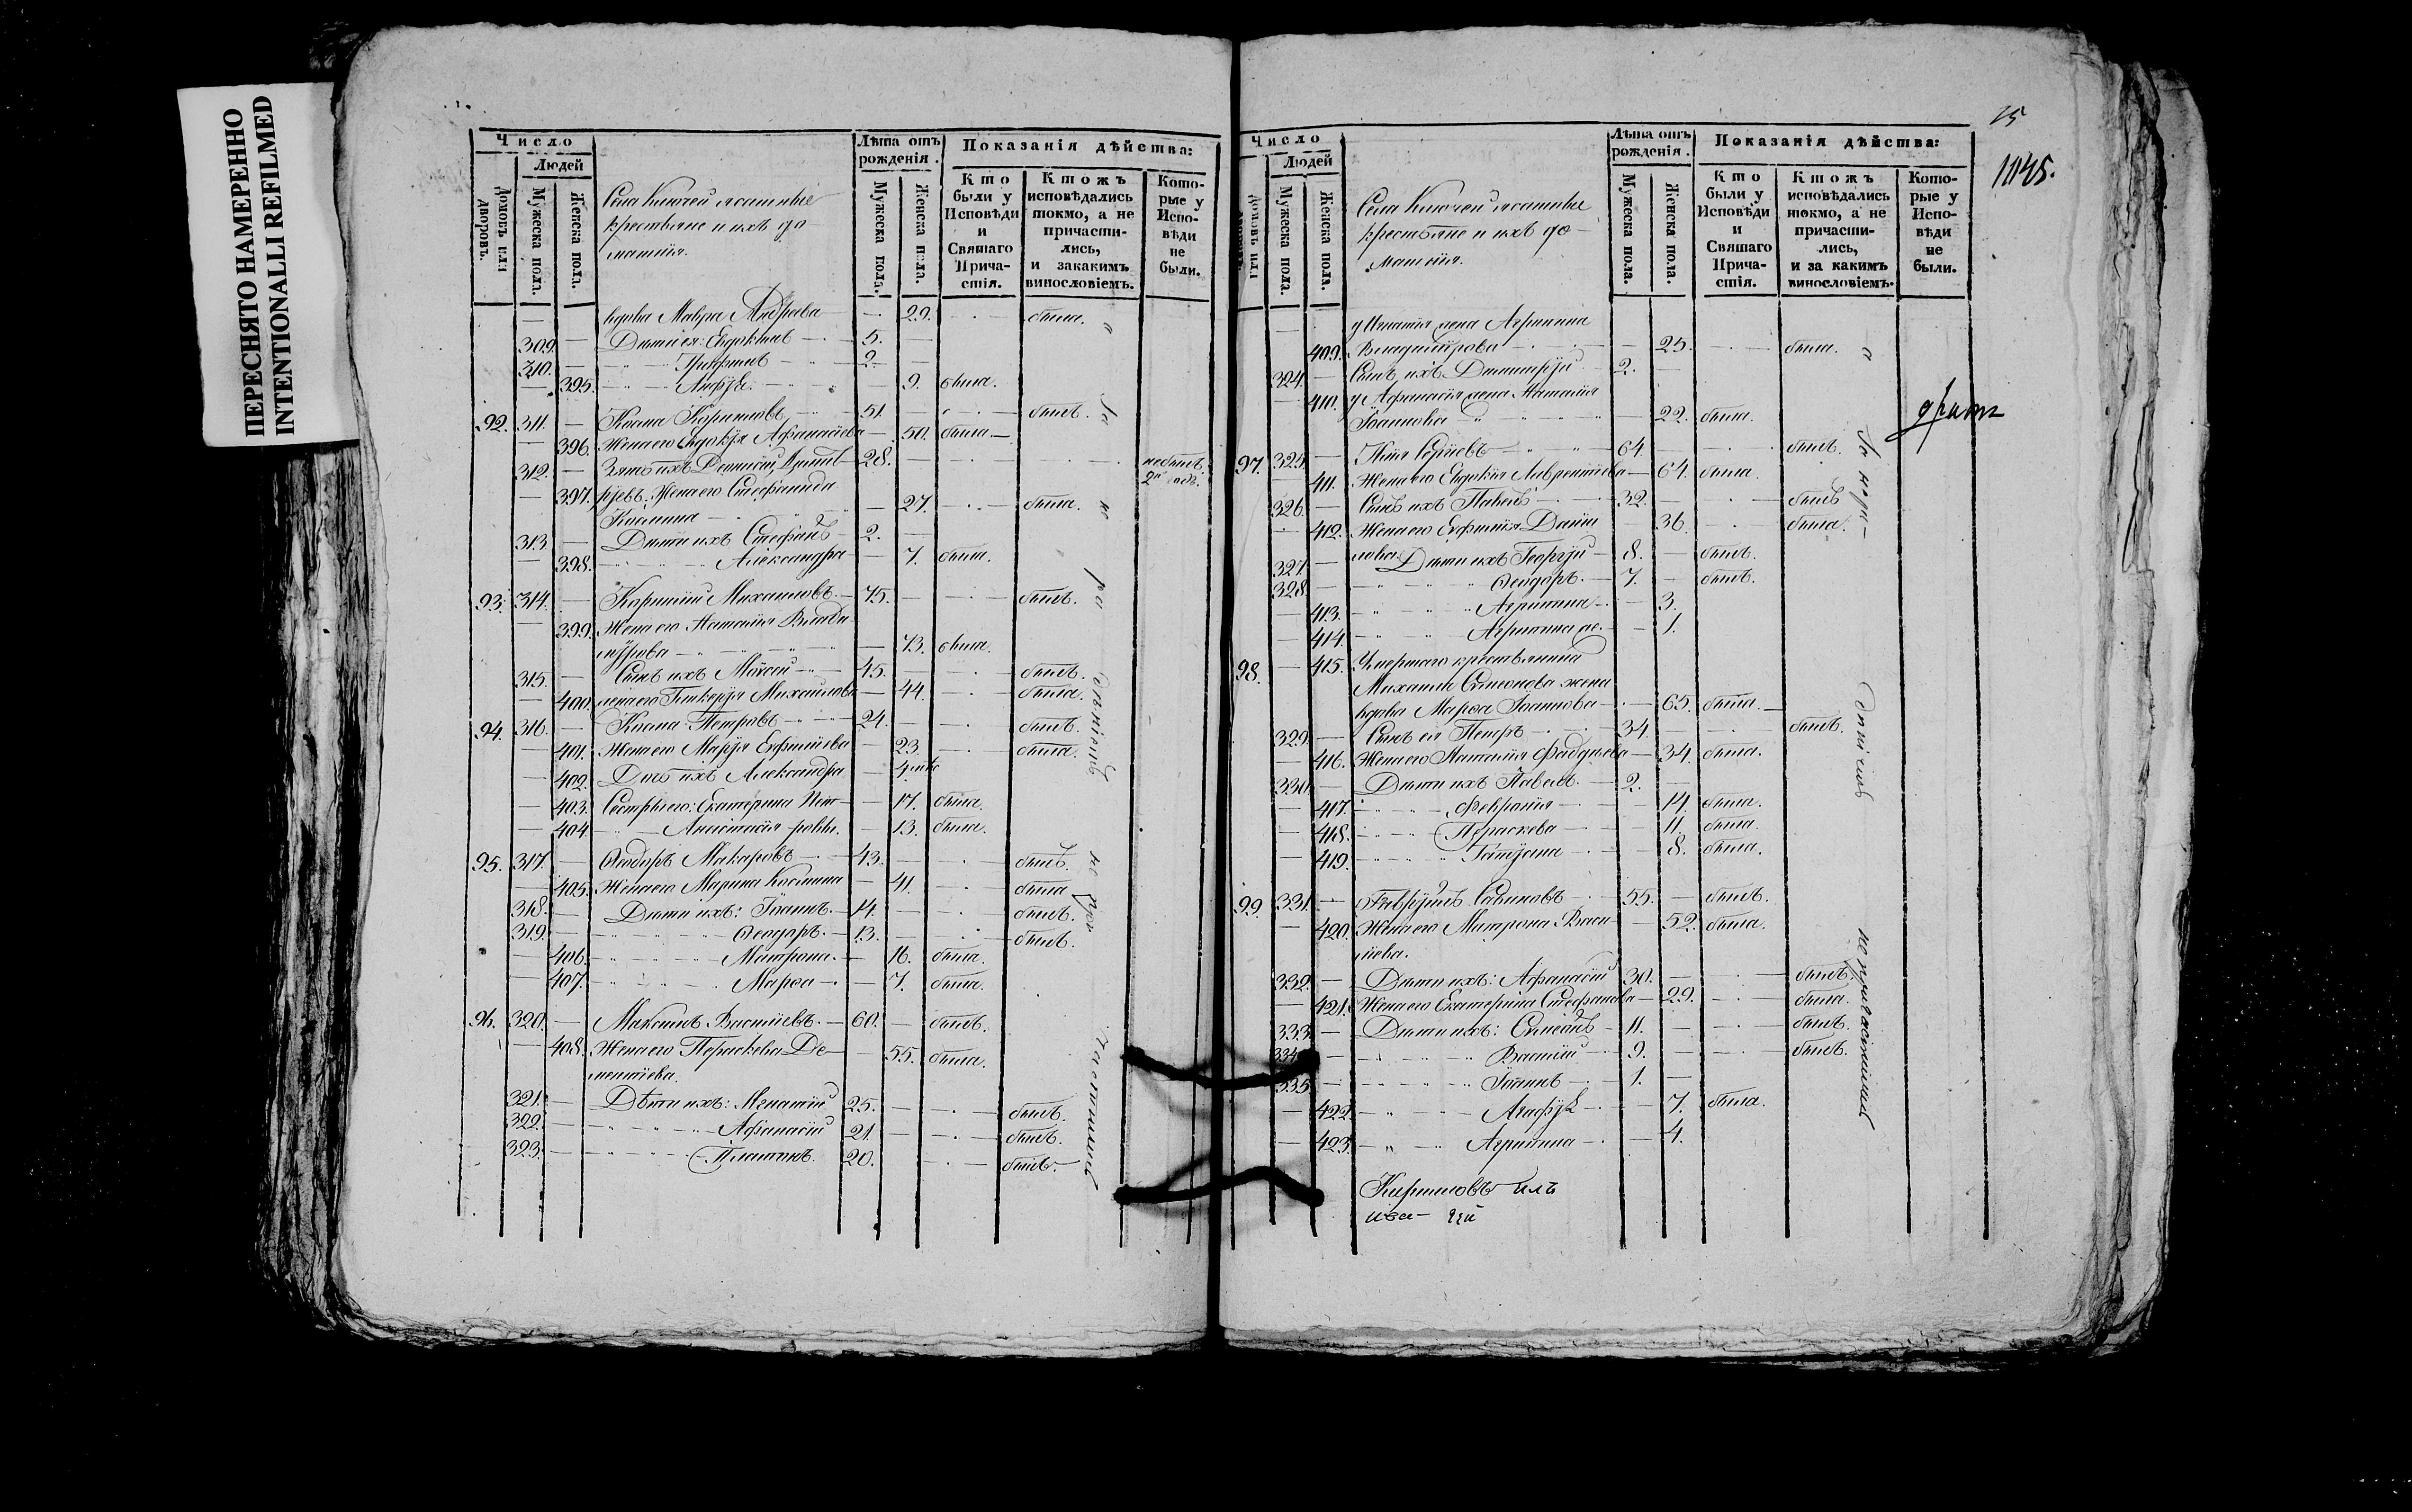 ПЕРЕСНЯТО НАМЕРЕННО
INTENTIONALLI REFILMED
Число
Людей
домовъ или дворовъ.
Мужеска пола.
Женска пола.
Села Ключей ясашные
крестьяне и ихъ до-
машнія.
Лѣта отъ рожденія.
Мужеска пола.
Женска пола.
Показанія дѣйства:
Кто были у Исповѣди и Святаго Прича-стія.
Ктожъ исповѣдались токмо, а не причасти-лись, и закакимъ винословіемъ.
Кото-рые у Испо-вѣди не были.
вдова Мавра Андреева — 29. была.
309. Дѣти ея: Евдокимъ — 5.
310. Трифонъ — 2.
395. — 9. была.
92. 311. Косма Кориловъ — 51. былъ.
396. Жена его Евдокія Афанасіева — 50. была
312. Зять ихъ Дементій — 28. не былъ 2й годъ.
397. Жена его Стефанида
Космина — 27. была.
313. Дѣти ихъ Стефанъ — 2.
398. Александра — 7. была.
93. 314. Корнилій Михаиловъ — 75. былъ.
399. Жена его Наталія Влади-
мірова — 73. была.
315. Сынъ ихъ Моисей — 45. былъ.
400. жена его Гликерія Михаилова — 44. была.
94. 316. Косма Петровъ — 24. былъ.
401. Жена его Марія Евфиміева — 23. была.
402. Дочь ихъ Александра —
403. Сестры его: Екатерина Пет- — 17. была.
404. Анастасія ровы. — 13. была.
95. 317. Ѳеодоръ Макаровъ — 43. былъ.
405. Жена его Марина Космина — 41. была
318. Дѣти ихъ: Іоаннъ. — 14. былъ.
319. Ѳеодоръ. — 13. былъ.
406. Матрона. — 16. была.
407. Марѳа — 7. была.
96. 320. Максимъ Василіевъ. — 60. былъ.
408. Жена его Параскева Де-
ментіева. — 55. была.
321. Дѣти ихъ: Игнатій 25. былъ.
322. Афанасій 21. былъ.
323. Платонъ. 20. былъ.
За нерадѣніемъ не причастились
15
1145.
Число
Людей
домовъ или
Мужеска пола.
Женска пола.
Села Ключей ясашные
крестьяне и ихъ до-
машнія.
Лѣта отъ рожденія.
Мужеска пола.
Женска пола.
Показанія дѣйства:
Кто были у Исповѣди и Святаго Прича-стія.
Ктожъ исповѣдались токмо, а не причасти-лись, и за какимъ винословіемъ.
Кото-рые у Испо-вѣди не были.
у Игнатія жена Агрипина
409. Владимірова — 25. была.
324. Сынъ ихъ Димитрій — 2.
410. у Афанасія жена Наталія
Іоаннова — 22. была.
97. 325. Илія Сергіевъ — 64. былъ.
411. Жена его Евдокія Лаврентіева — 64. была.
326. Сынъ ихъ Павелъ — 32. былъ
412. Жена его Евфимія Дани- 36. была.
лова
327. Дѣти ихъ Георгій — 8. былъ.
328. Ѳеодоръ. — 7. былъ.
413. Агрипина — 3.
414. Агрипина — 1.
98. 415. Умершаго крестьянина
Михаила Симеонова жена
вдова Марѳа Іоаннова — 65. была.
329. Сынъ ея Петръ — 34 былъ.
416. Жена его Наталія Фаддѣева — 34. была.
330. Дѣти ихъ Павелъ. — 2.
417. Февронія — 14. была.
418. Параскева — 11. была.
419. Татіана — 8. была.
99. 331. Гавріилъ Савиновъ — 55. былъ.
420. Жена его Матрона Васи- — 52. была.
ліева.
332. Дѣти ихъ: Афанасій 30. былъ.
421. Жена его Екатерина Стефанова — 29. была.
333. Дѣти ихъ: Симеонъ — 11. былъ.
334. Василій — 9. былъ.
335. Іоаннъ — 1.
422. 7. была.
423. Агрипина — 4.
За нерадѣніемъ не причастились